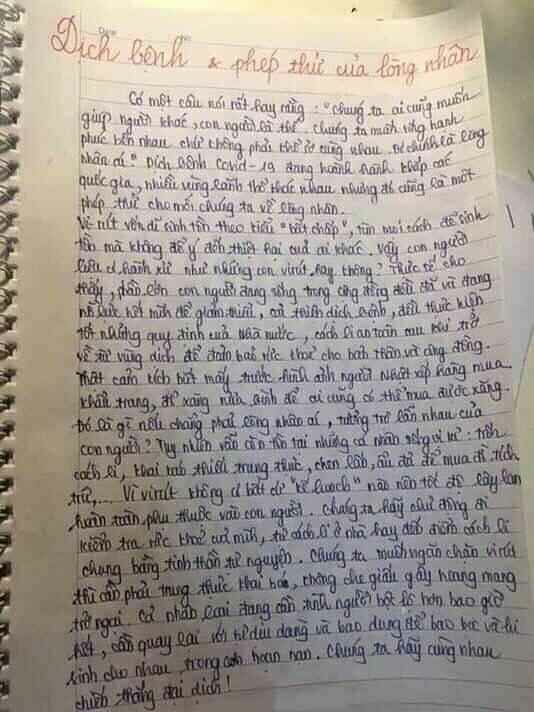 Dịch bệnh & phép thử của lòng nhân
Có một câu nói rất hay rằng: "Chúng ta ai cũng muốn
giúp người khác, con người là thế. Chúng ta muốn sống hạnh
phúc bên nhau chứ không phải thế ở cùng nhau. Đó chính là lòng
nhân ái." Dịch bệnh Covid-19 đang hoành hành khắp các
quốc gia, nhiều vùng lãnh thổ khác nhau nhưng đó cũng là một
phép thử cho mỗi chúng ta về lòng nhân.
Vi rút vốn dĩ sinh tồn theo kiểu "bất chấp", tìm mọi cách để sinh
tồn mà không để ý đến thiệt hại của ai khác. Vậy con người
liệu có hành xử như những con virút hay không? Thực tế cho
thấy, phần lớn con người đang sống trong cộng đồng đều đã và đang
nỗ lực hết mình để giảm thiểu, cải thiện dịch bệnh, đều thực hiện
tốt những quy định của nhà nước, cách li an toàn sau khi trở
về từ vùng dịch để đảm bảo sức khoẻ cho bản thân và cộng đồng.
Thật cảm kích biết mấy trước hình ảnh người Nhật xếp hàng mua
khẩu trang, đổ xăng nửa bình để ai cũng có thể mua được xăng.
Đó là gì nếu chẳng phải lòng nhân ái, tương trợ lẫn nhau của
con người? Tuy nhiên vẫn còn tồn tại những cá nhân sống vị kỉ: trốn
cách li, khai báo thiếu trung thực, chen lấn, ẩu đả để mua đồ tích
trữ,... Vì virút không có bất cứ "kế hoạch" nào nên tốc độ lây lan
hoàn toàn phụ thuộc vào con người. Chúng ta hãy chủ động đi
kiểm tra sức khoẻ của mình, tự cách li ở nhà hay đến điểm cách li
chung bằng tinh thần tự nguyện. Chúng ta muốn ngăn chặn virút
thì cần phải trung thực khai báo, không che giấu gây hoang mang
trở ngại. Cả nhân loại đang cần tình người bộc lộ hơn bao giờ
hết, cần quay lại với sự dịu dàng và bao dung để bao bọc và hi
sinh cho nhau trong cơn hoạn nạn. Chúng ta hãy cùng nhau
chiến thắng đại dịch!